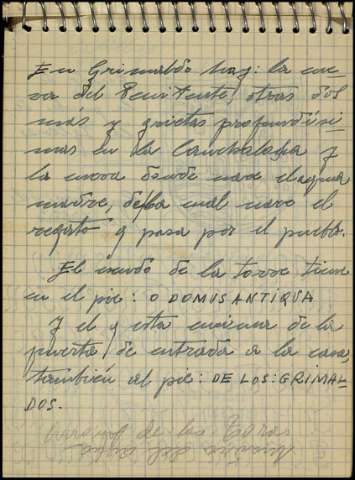 En Grimaldo hay: la cue-
va del Penitente, otras dos
mas y grietas profundisi-
mas en la Canchalera y
la cueva donde nace el agua
madre, de la cual nace el
regato y pasa por el pueblo.
El escudo de la torre tiene
en el pie: O DOMUS ANTIQUA
Y el q esta encima de la
puerta de entrada a la casa,
tambien al pie: DE LOS: GRIMAL-
DOS.